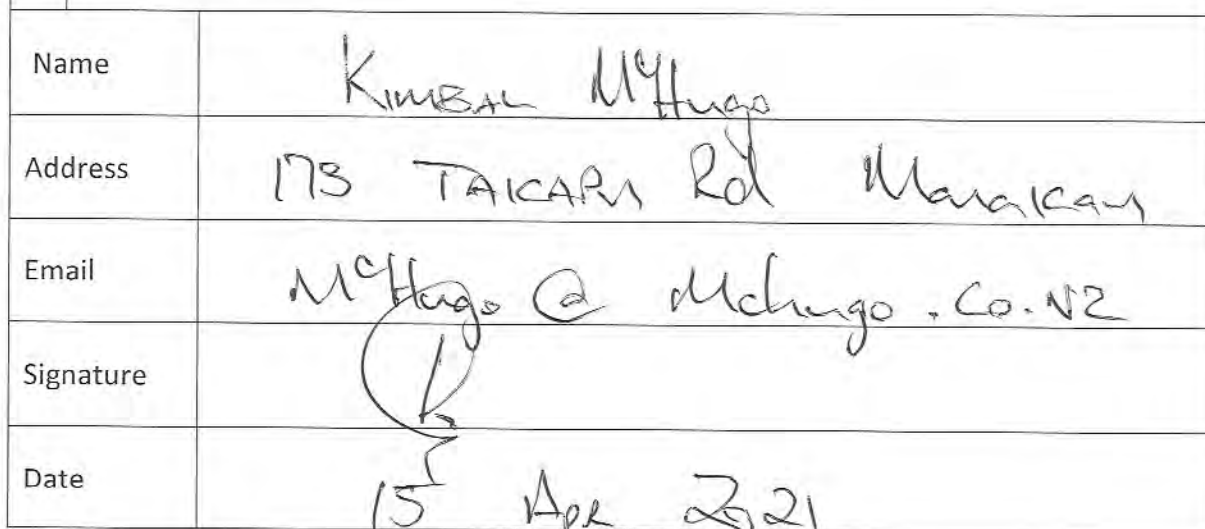 Name Kimbal McHugo
Address 173 TAKAPU Rd Manakau
Email McHugo @ Mchugo.Co.NZ
Signature
Date 15 Apr 2021